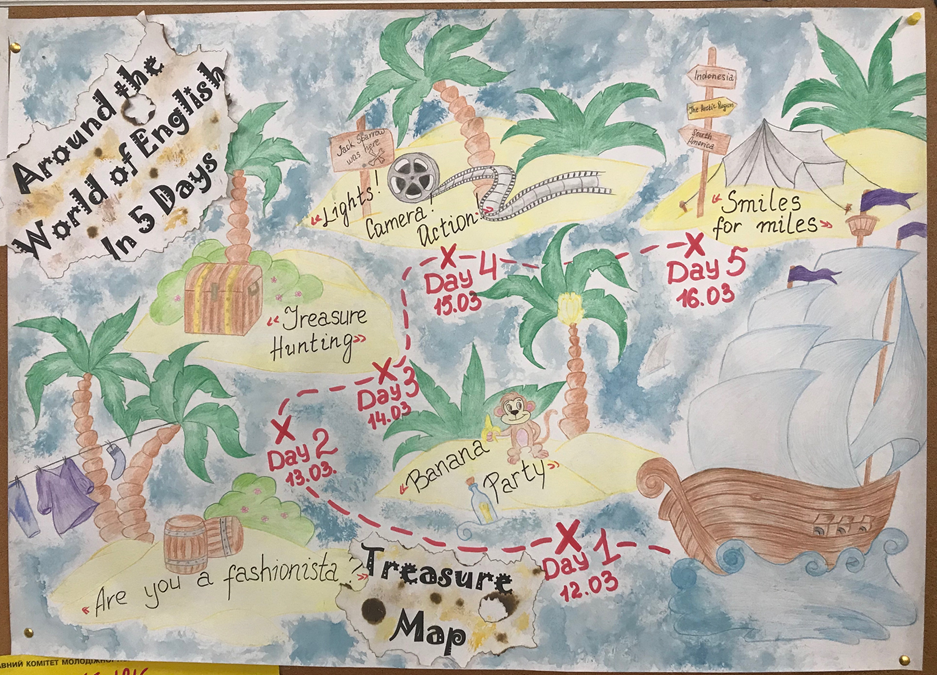 Around the
World of English
In 5 Days
Jack Sparrow
was here
«Lights!
Camera!
Action»
Indonesia
The Arctic Region
South
America
«Smiles
for miles»
Day 4
15.03
Day 5
16.03
«Treasure
Hunting»
Day 3
14.03
Day 2
13.03.
«Banana
Party»
Day 1
12.03
«Are you a fashionista?»
Treasure
Map
КОМІТЕТ